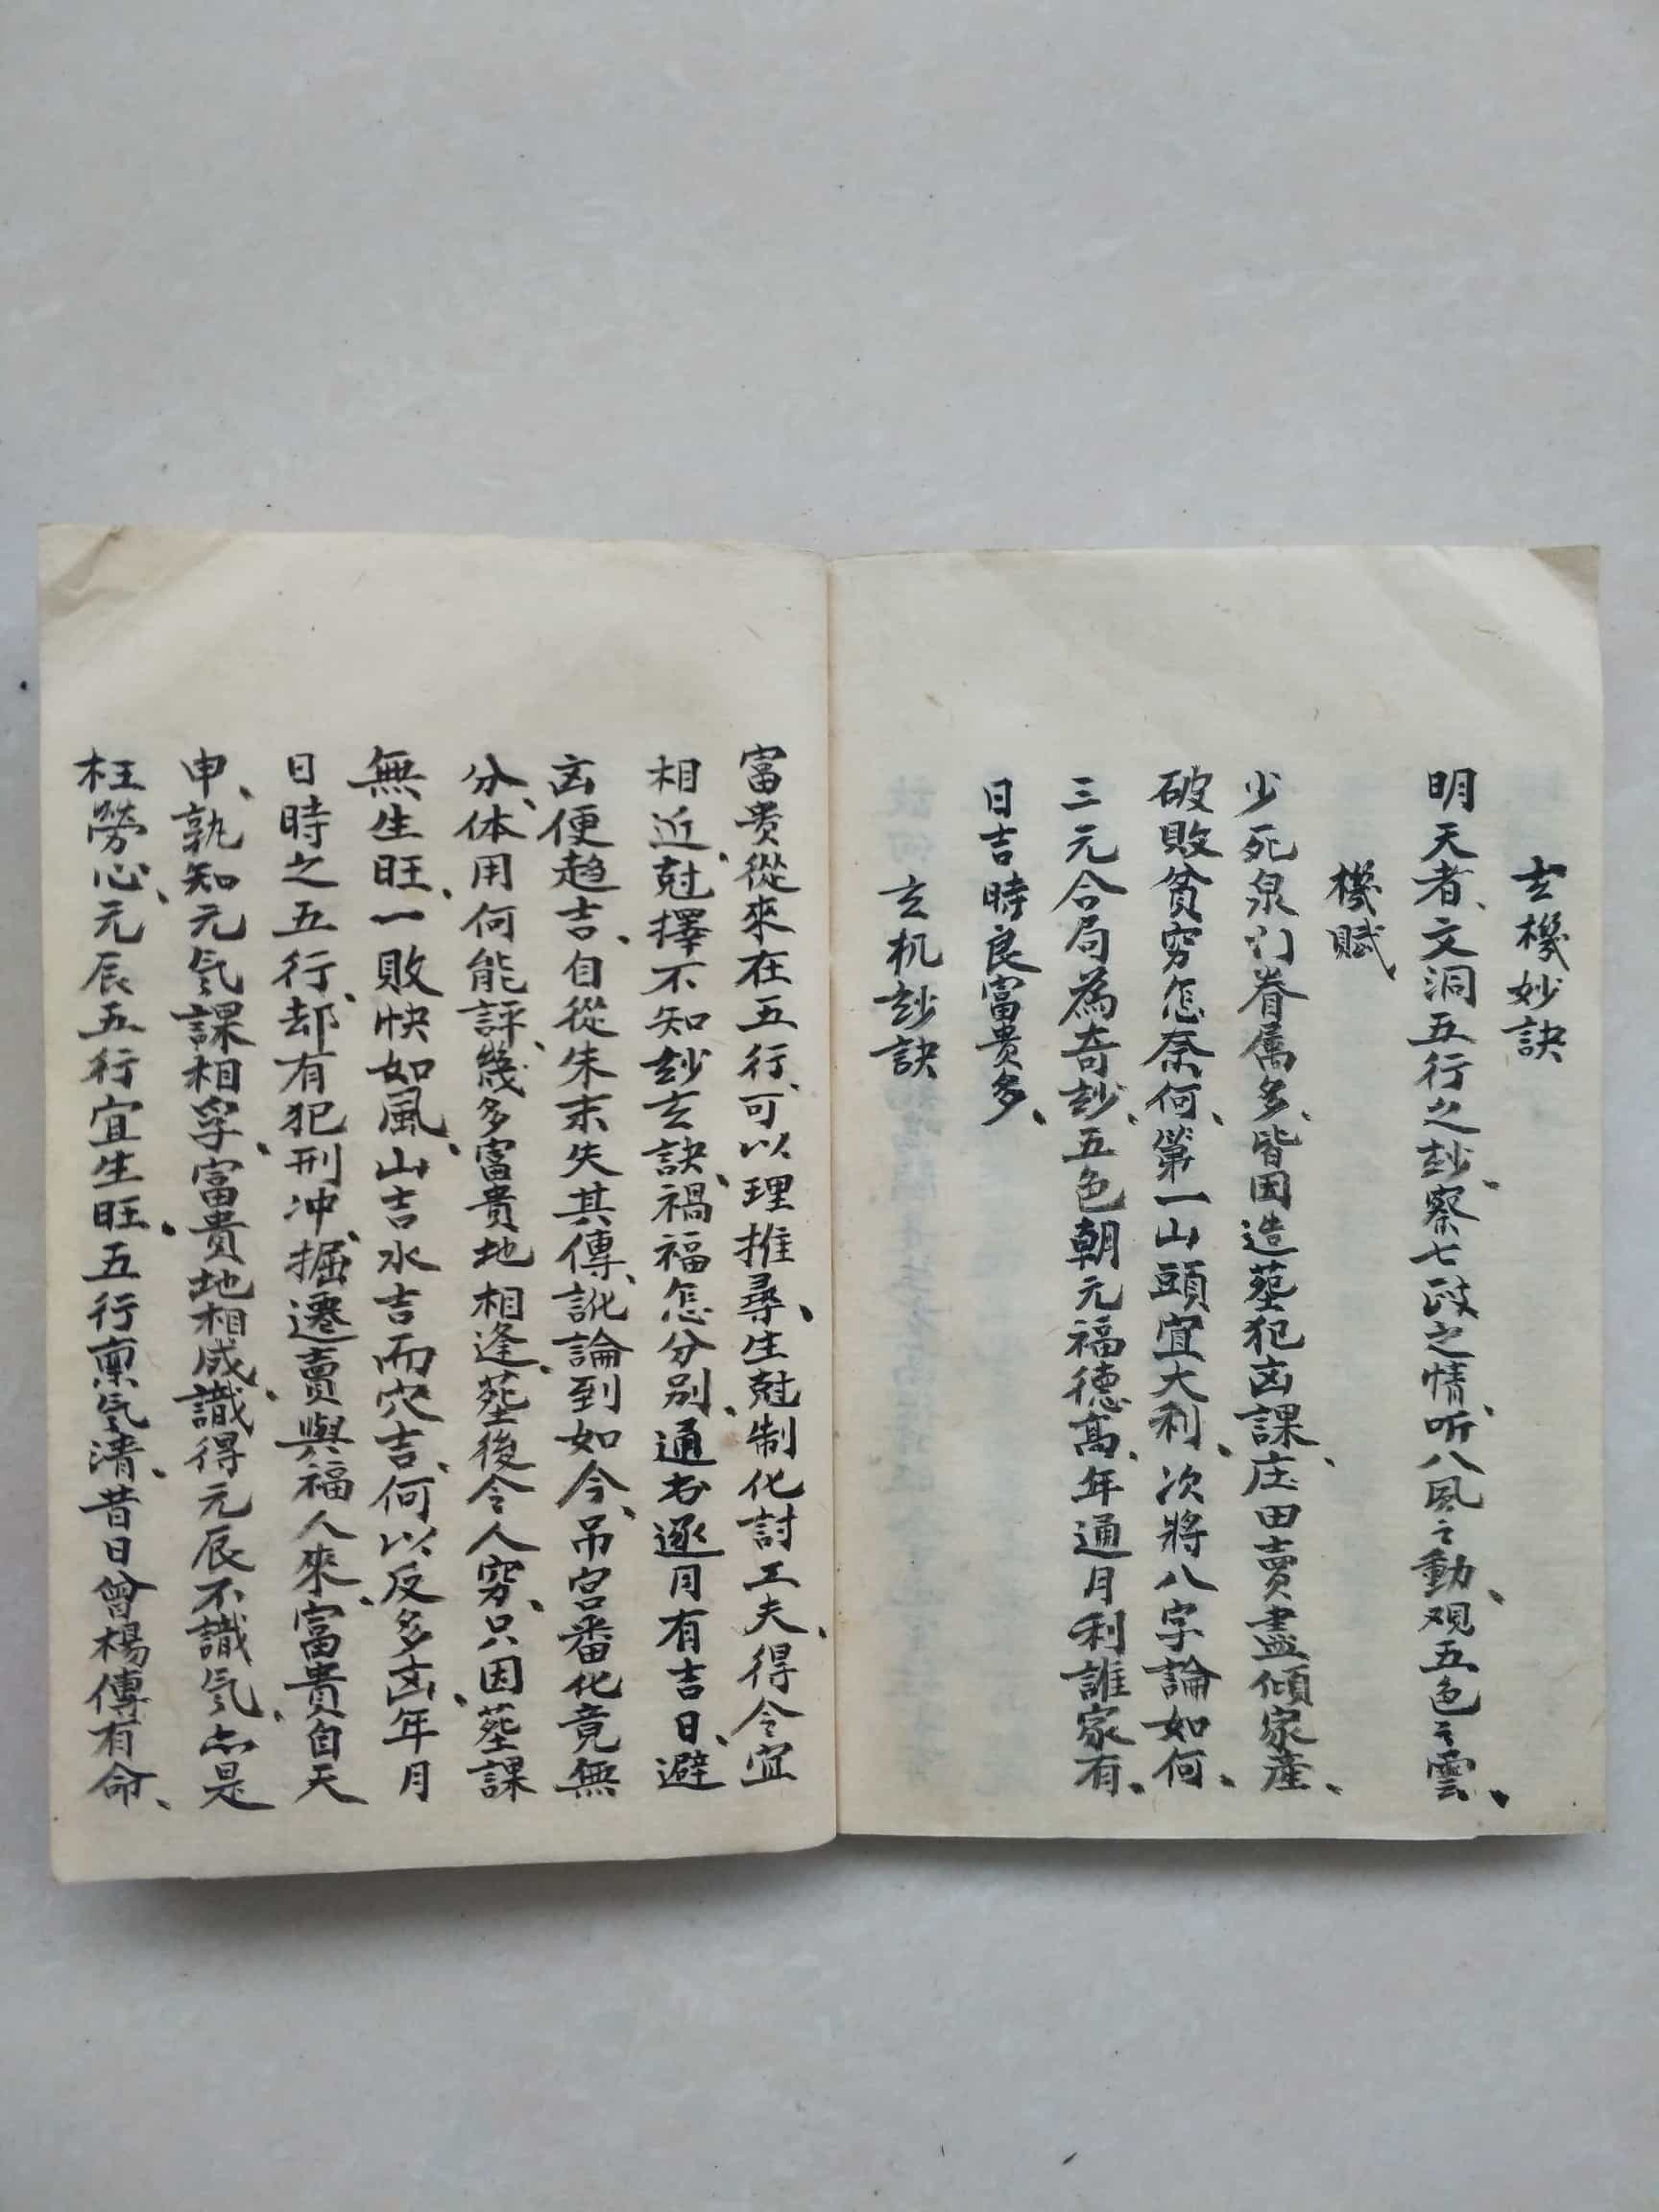 玄機妙訣
明天者、文洞五行之玅、察七政之情、听八风之動、观五色之雲、
機賦
少死泉门眷属多、皆因造塟犯凶課、庄田賣盡傾家產、
破敗貧窮怎奈何、第一山頭宜大利、次將八字論如何、
三元合局為奇玅、五色朝元福德高、年通月利誰家有、
日吉時良富贵多、
玄机玅訣
富贵從來在五行、可以理推尋、生尅制化討工夫、得令宜
相近、尅擇不知玅玄訣、禍福怎分别、通书逐月有吉日、避
凶便趋吉、自從朱末失其傳、訛論到如今、吊宫番化竟無
分、体用何能評、幾多富貴地相逢、塟後令人窮、只因塟課
無生旺、一敗快如風、山吉水吉而穴吉、何以反多凶、年月
日時之五行、却有犯刑冲、掘遷賣與福人來、富貴自天
申、孰知元氣課相孚、富貴地相成、識得元辰不識気、亦是
枉勞心、元辰五行宜生旺、五行稟気清、昔日曾楊傳有命、